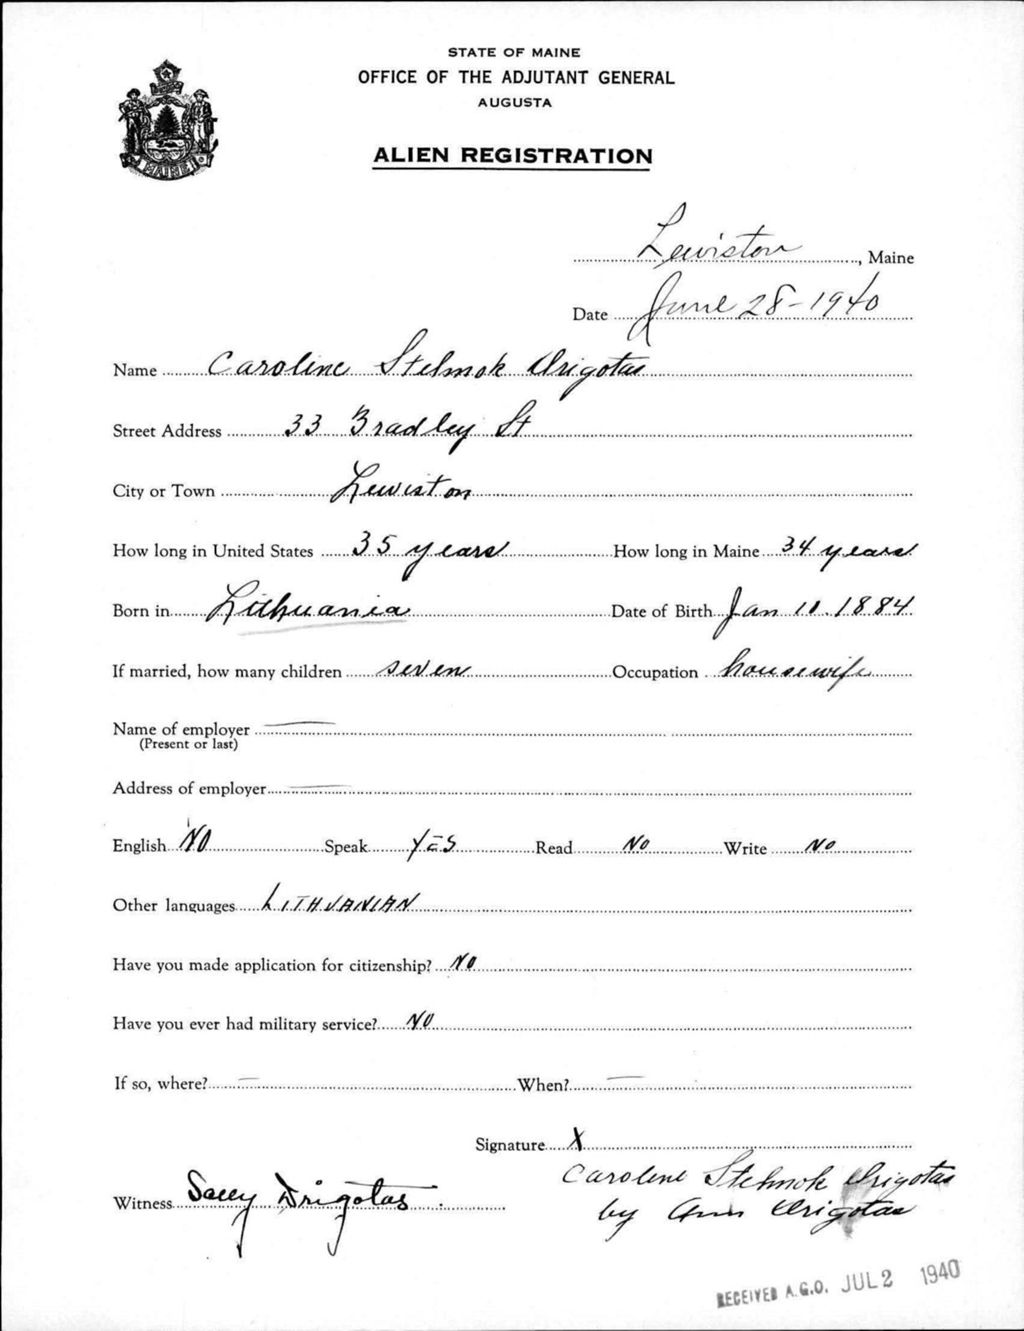 STATE OF MAINE
OFFICE OF THE ADJUTANT GENERAL
AUGUSTA
ALIEN REGISTRATION
MAINE
Lewiston, Maine
Date June 28-1940
Name Caroline Stelmok Drigotas
Street Address 33 Bradley St
City or Town Lewiston
How long in United States 35 years How long in Maine 34 years
Born in Lithuania Date of Birth Jan 10. 1884
If married, how many children seven Occupation housewife
Name of employer —
(Present or last)
Address of employer —
English NO Speak YES Read No Write No
Other languages LITHUANIAN
Have you made application for citizenship? NO
Have you ever had military service? NO
If so, where? — When? —
Signature X
Caroline Stelmok Drigotas
Witness Sally Drigotas by Ann Drigotas
RECEIVED A.G.O. JUL 2 1940